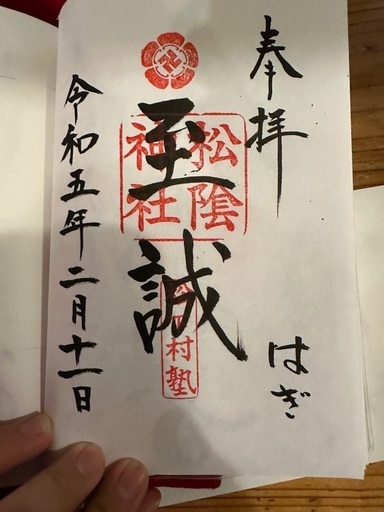 奉拝
はぎ
松陰神社
至誠
松下村塾
令和五年二月十一日